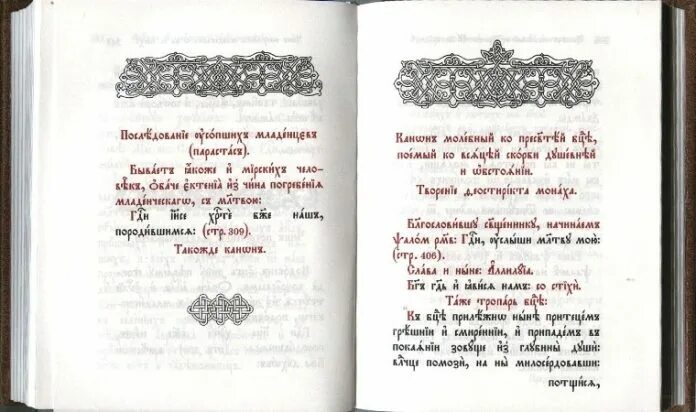 Послѣ́дованїе ᲂу҆со́пшихъ младе́нцєвъ
(параста́съ).
Быва́етъ ꙗ҆́коже и҆ мїрски́хъ чело-
вѣ́къ, ѻ҆ба́че є҆ктенїѧ̀ и҆з̾ чи́на погребе́нїѧ
младе́нческагѡ, съ мл҃твою:
Гдⷭ҇и і҆и҃се хрⷭ҇тѐ бж҃е на́шъ,
породи́вшимсѧ: (стр. 309).
Та́кожде канѡ́нъ.
Канѡ́нъ моле́бный ко прест҃ѣ́й бц҃ѣ,
пое́мый ко всѧ́цей ско́рби душе́внѣй
и҆ ѡ҆бстоѧ́нїи.
Творе́нїе ѳеостири́кта мона́ха.
Блгⷭ҇ослови́вшу сщ҃е́ннику, начина́емъ
ѱало́мъ рм҃в: Гдⷭ҇и, ᲂу҆слы́ши мл҃тву мою̀:
(стр. 406).
Сла́ва и҆ ны́не: А҆ллилу́їа.
Бг҃ъ гдⷭ҇ь и҆ ꙗ҆ви́сѧ на́мъ: со стїхѝ.
Та́же тропа́рь бц҃ѣ:
Къ бц҃ѣ прилѣ́жнѡ ны́нѣ притеце́мъ
грѣ́шнїи и҆ смире́ннїи, и҆ припаде́мъ въ
покаѧ́нїи зову́ще и҆з̾ глубины̀ дꙋшѝ:
влⷣчце помозѝ, на ны̀ милосе́рдовавши:
потщи́сѧ,